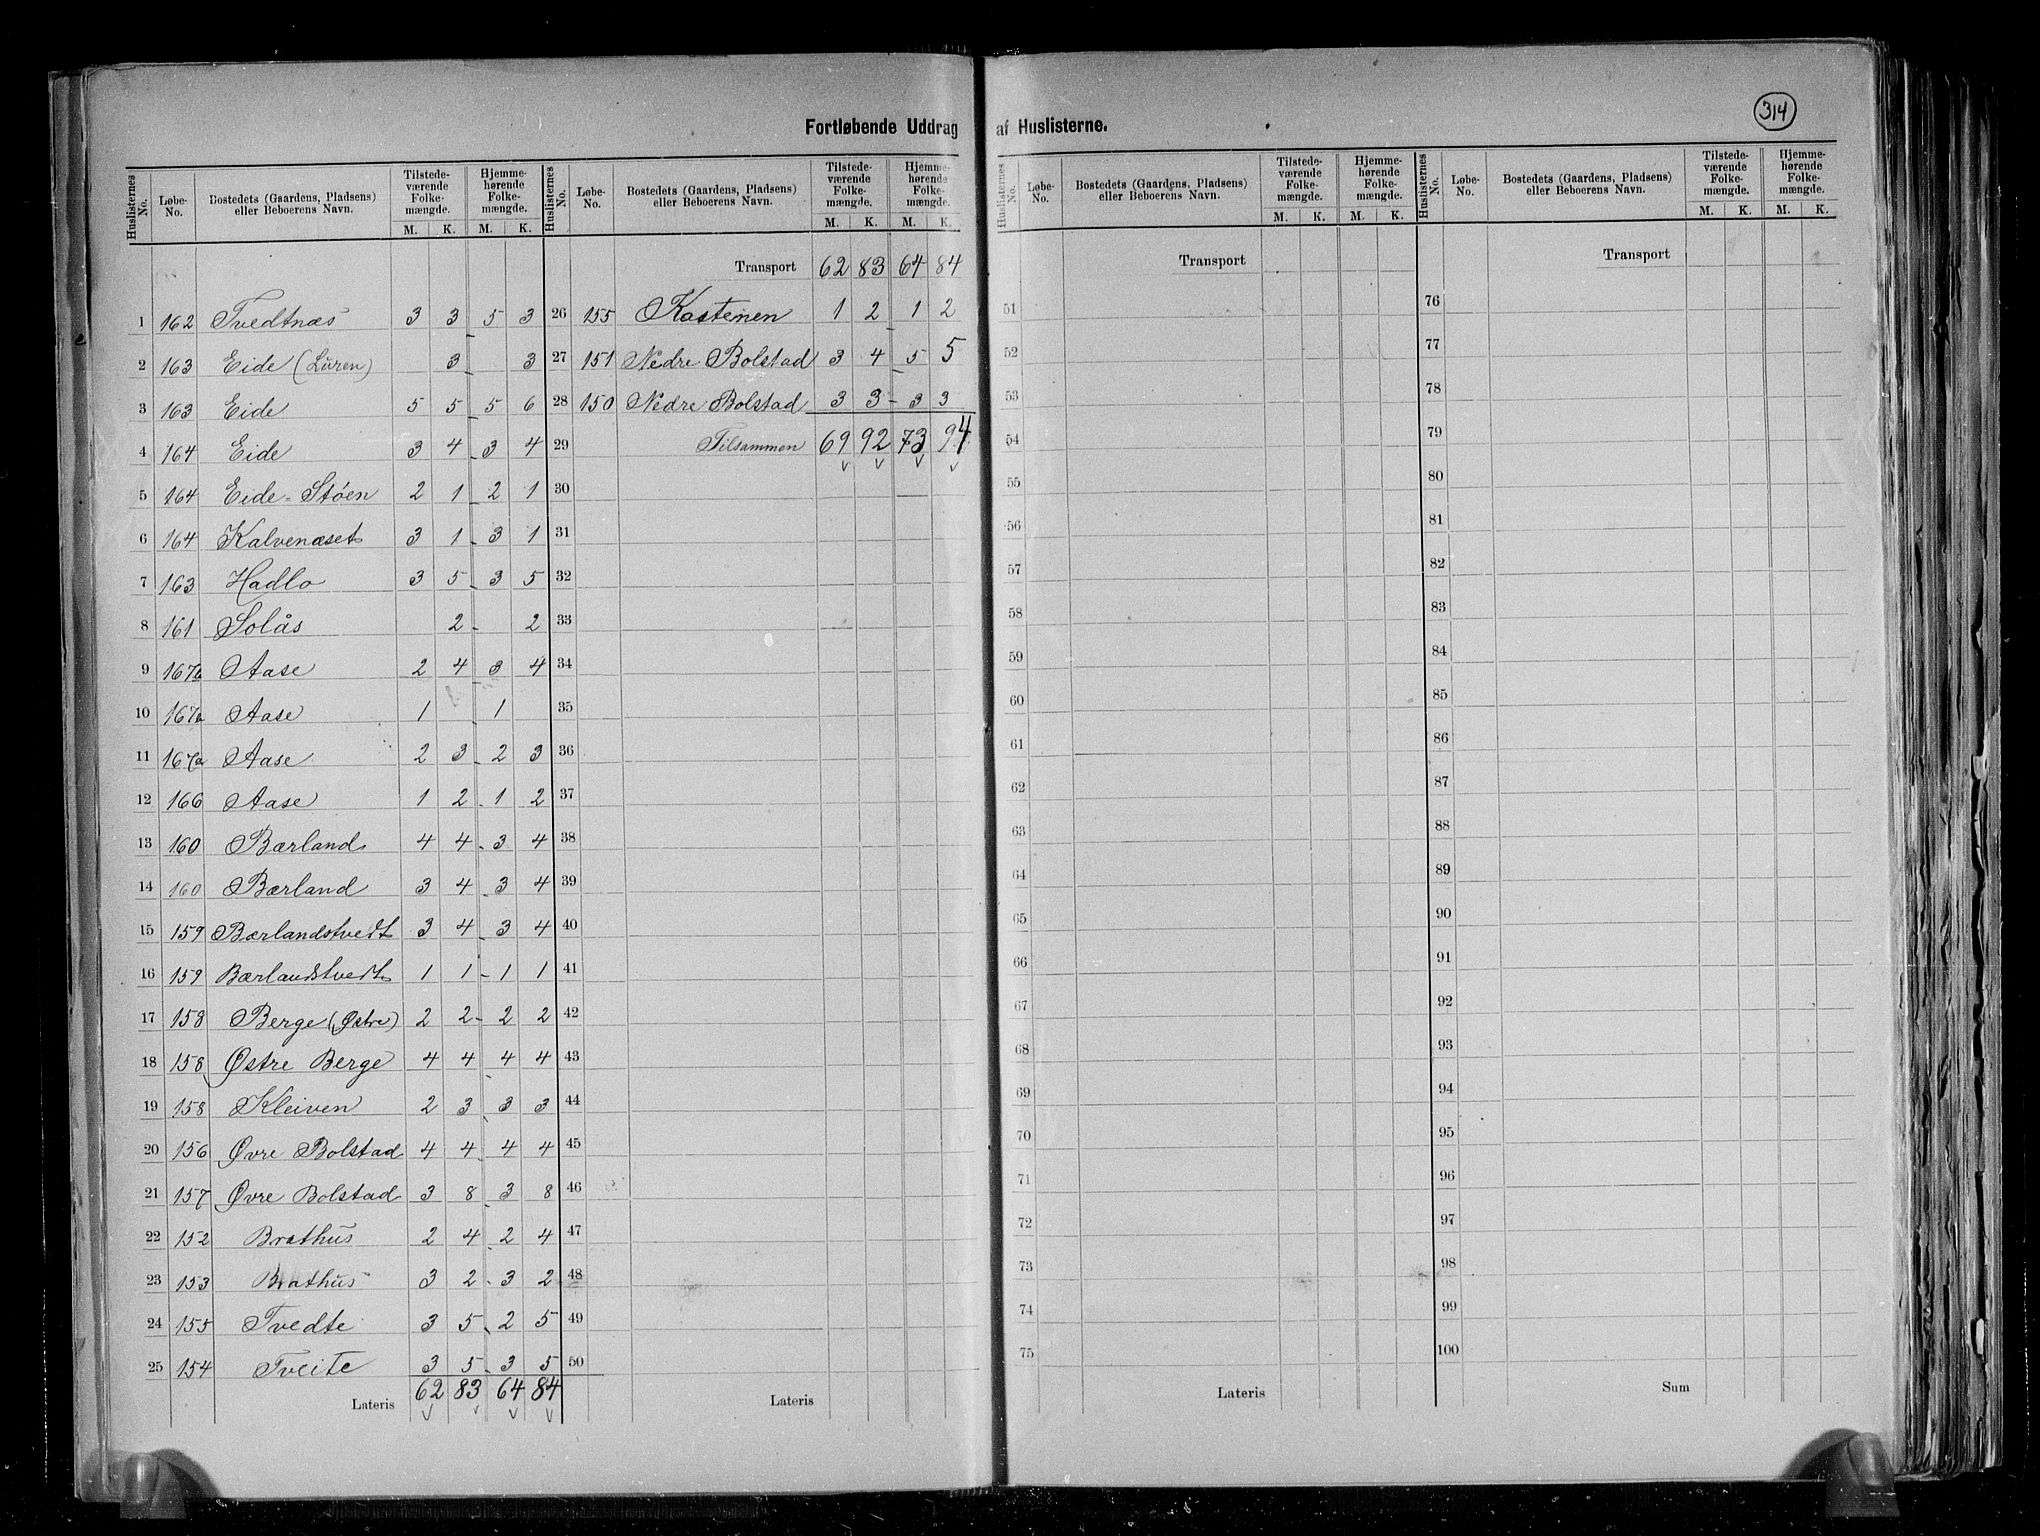 314
Fortløbende Uddrag af Huslisterne.
Huslisternes No. | Løbe-No. | Bostedets (Gaardens, Pladsens) eller Beboerens Navn. | Tilstedeværende Folkemængde. M. K. | Hjemmehørende Folkemængde. M. K.
1 162 Tvedtnæs 3 3 5 3
2 163 Eide (Luren) 3 3
3 163 Eide 5 5 5 6
4 164 Eide 3 4 3 4
5 164 Eide-Støen 2 1 2 1
6 164 Kalvenæset 3 1 3 1
7 163 Hadlo 3 5 3 5
8 161 Solås 2 2
9 167b Aase 2 4 3 4
10 167a Aase 1 1
11 167a Aase 2 3 2 3
12 166 Aase 1 2 1 2
13 160 Bærland 4 4 3 4
14 160 Bærland 3 4 3 4
15 159 Bærlandstvedt 3 4 3 4
16 159 Bærlandstvedt 1 1 1 1
17 158 Berge (Østre) 2 2 2 2
18 158 Østre Berge 4 4 4 4
19 158 Kleiven 2 3 3 3
20 156 Øvre Bolstad 4 4 4 4
21 157 Øvre Bolstad 3 8 3 8
22 152 Brathus 2 4 2 4
23 153 Brathus 3 2 3 2
24 155 Tvedte 3 5 2 5
25 154 Tveite 3 5 3 5
Lateris 62 83 64 84
Huslisternes No. | Løbe-No. | Bostedets (Gaardens, Pladsens) eller Beboerens Navn. | Tilstedeværende Folkemængde. M. K. | Hjemmehørende Folkemængde. M. K.
Transport 62 83 64 84
26 155 Kastenen 1 2 1 2
27 151 Nedre Bolstad 3 4 5 5
28 150 Nedre Bolstad 3 3 3 3
29 Tilsammen 69 92 73 94
30
31
32
33
34
35
36
37
38
39
40
41
42
43
44
45
46
47
48
49
50
Lateris
Huslisternes No. | Løbe-No. | Bostedets (Gaardens, Pladsens) eller Beboerens Navn. | Tilstedeværende Folkemængde. M. K. | Hjemmehørende Folkemængde. M. K.
Transport
51
52
53
54
55
56
57
58
59
60
61
62
63
64
65
66
67
68
69
70
71
72
73
74
75
Lateris
Huslisternes No. | Løbe-No. | Bostedets (Gaardens, Pladsens) eller Beboerens Navn. | Tilstedeværende Folkemængde. M. K. | Hjemmehørende Folkemængde. M. K.
Transport
76
77
78
79
80
81
82
83
84
85
86
87
88
89
90
91
92
93
94
95
96
97
98
99
100
Sum